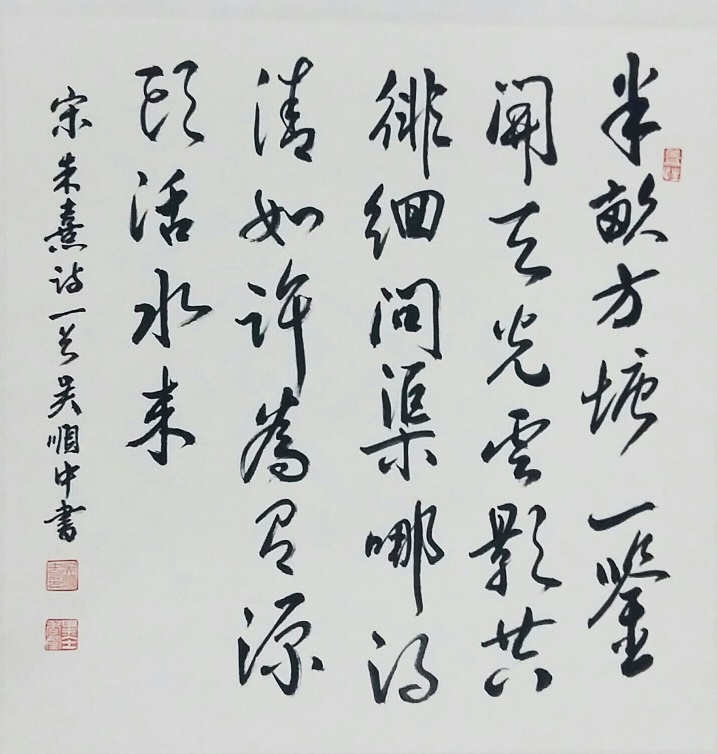 半畝方塘一鑒
開天光雲影共
徘徊問渠哪得
清如許為有源
頭活水來
宋朱熹詩一首吴順中書